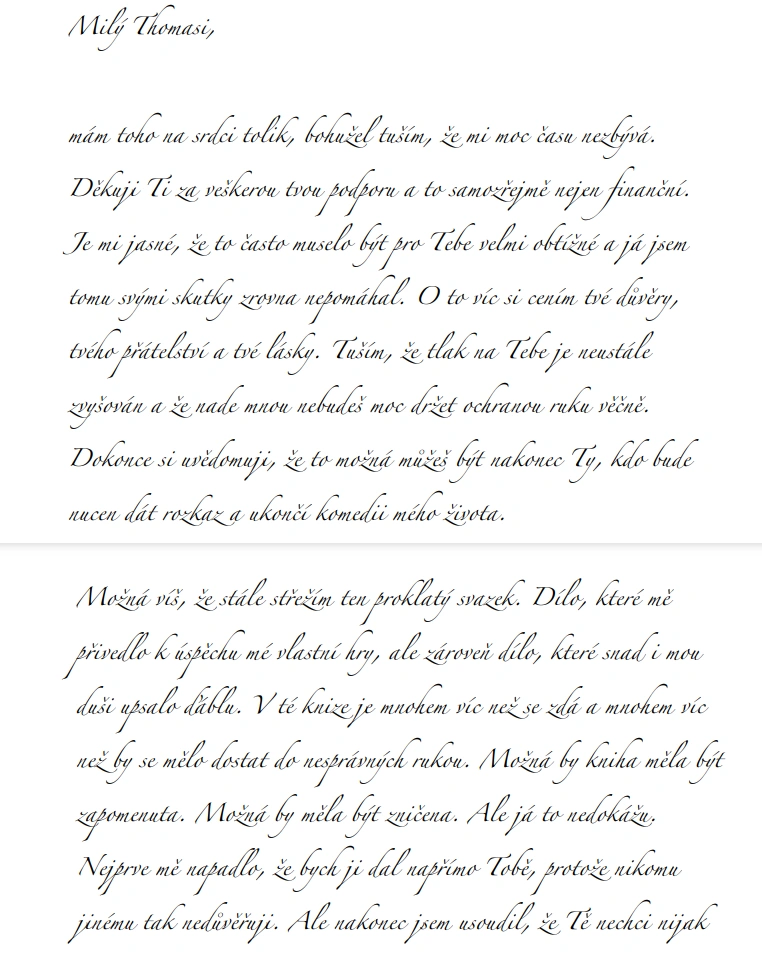 Milý Thomasi,
mám toho na srdci tolik, bohužel tuším, že mi moc času nezbývá.
Děkuji Ti za veškerou tvou podporu a to samozřejmě nejen finanční.
Je mi jasné, že to často muselo být pro Tebe velmi obtížné a já jsem
tomu svými skutky zrovna nepomáhal. O to víc si cením tvé důvěry,
tvého přátelství a tvé lásky. Tuším, že tlak na Tebe je neustále
zvyšován a že nade mnou nebudeš moc držet ochranou ruku věčně.
Dokonce si uvědomuji, že to možná můžeš být nakonec Ty, kdo bude
nucen dát rozkaz a ukončí komedii mého života.
Možná víš, že stále střežím ten proklatý svazek. Dílo, které mě
přivedlo k úspěchu mé vlastní hry, ale zároveň dílo, které snad i mou
duši upsalo ďáblu. V té knize je mnohem víc než se zdá a mnohem víc
než by se mělo dostat do nesprávných rukou. Možná by kniha měla být
zapomenuta. Možná by měla být zničena. Ale já to nedokážu.
Nejprve mě napadlo, že bych ji dal napřímo Tobě, protože nikomu
jinému tak nedůvěřuji. Ale nakonec jsem usoudil, že Tě nechci nijak